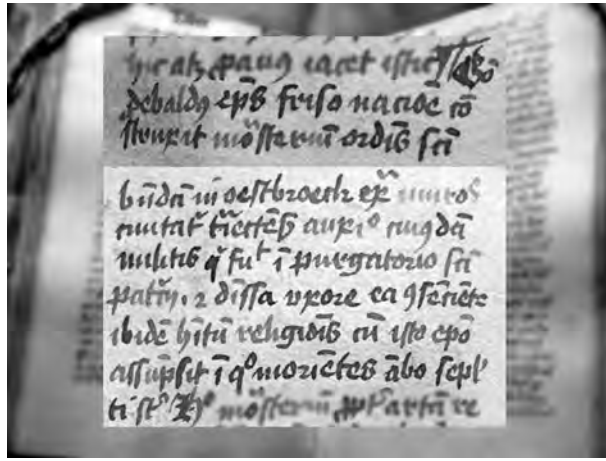 pauꝯ iacet istic
debaldꝯ ep̄s friso nacōe cō
struxit mōsteriū ordīs sc̄i
bn̄dc̄i in oestbroech ex̄ muros
ciuitat̄ t̄iectēs̄ auxiº cuiꝯdā
militis q̄ fuᵗ ī purgatorio sc̄i
⁊ dissa vxore ea ꝯsēciēte
ibidē hītū religiōis cū isto ep̄o
assūpsit ī qº moriētes ābo sepl'
ti sᵗ Hº mōsteriū ꝓpt' artā re